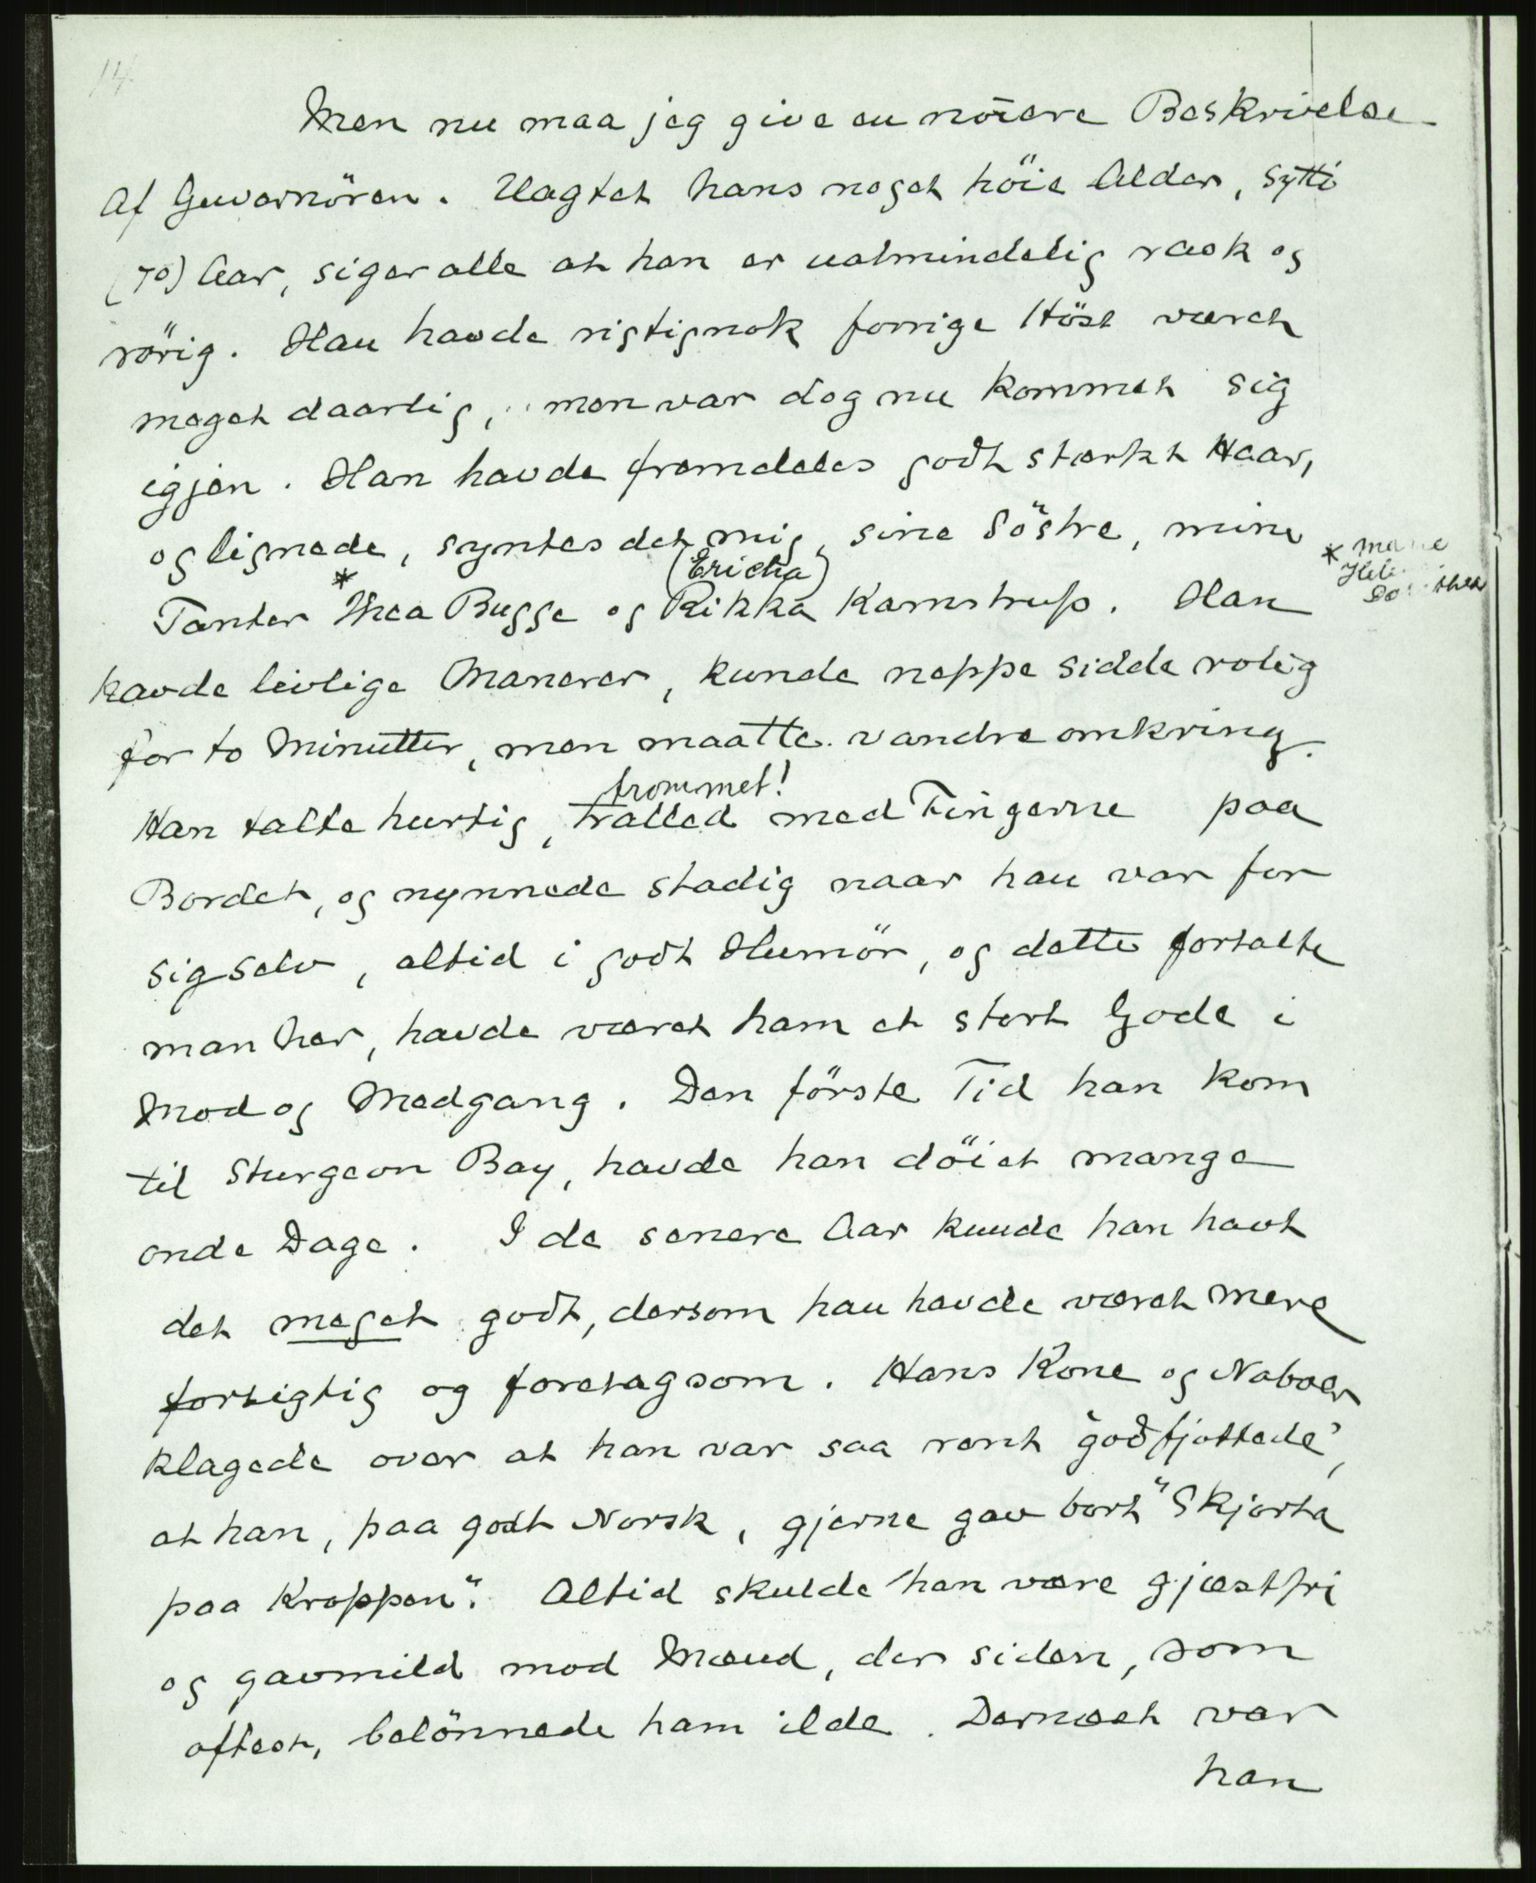 14.
Men nu maa jeg give en nöiere Beskrivelse
af Guvernören. Uagtet hans noget höie Alder, sytti
(70) Aar, siger alle at han er ualmindelig rask og
rörig. Han havde rigtignok forrige Höst været
meget daarlig, men var dog nu kommet sig
igjen. Han havde fremdeles godt stærkt Haar,
og lignede, syntes det mig, sine Söstre, mine
(Ericha)
Tanter *Thea Bugge og Rikka Kamstrup. Han
* Marie
havde livlige Manerer, kunde neppe sidde rolig
for to Minutter, men maatte vandre omkring.
trommet!
Han talte hurtig, tralled med Fingerne paa
Bordet, og nynnede stadig naar han var for
sig selv, altid i godt Humör, og dette fortalte
man her, havde været ham et stort Gode i
Mod og Medgang. Den förste Tid han kom
til Sturgeon Bay, havde han döiet mange
onde Dage. I de senere Aar kunde han havt
det meget godt, dersom han havde været mere
forsigtig og foretagsom. Hans Kone og Naboer
klagede over at han var saa rent "godfjottede",
at han, paa godt Norsk, gjerne gav bort "Skjorta
paa Kroppen". Altid skulde han være gjæstfri
og gavmild mod Mænd, der siden, som
oftest, belönnede ham ilde. Dernæst var
han